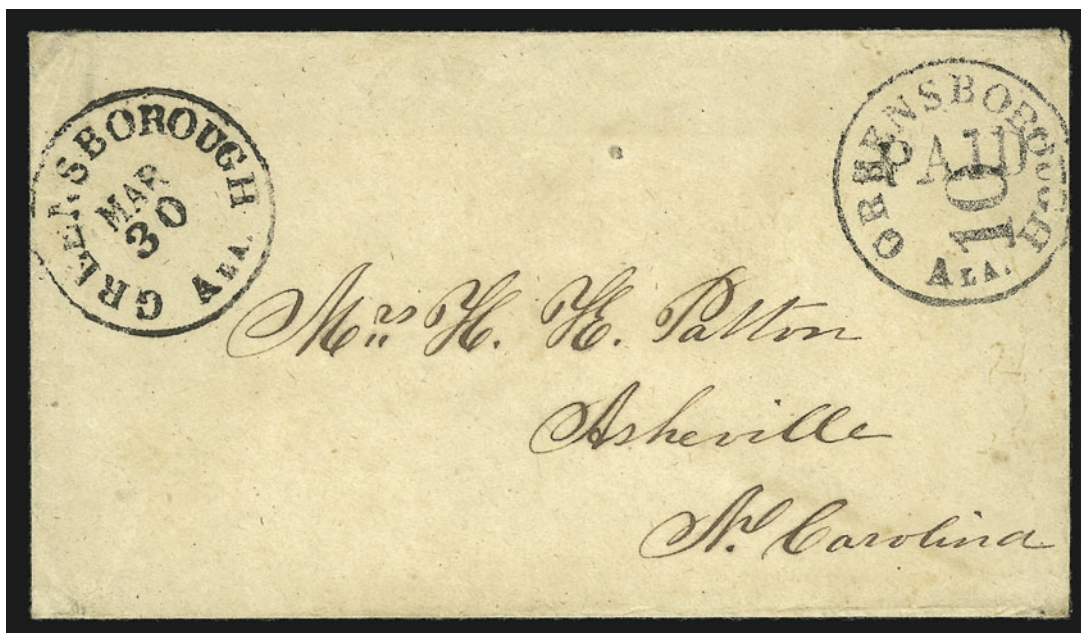 GREENSBOROUGH
MAR
30
ALA.
GREENSBOROUGH
PAID
10
ALA.
Mrs H. H. Patton
Asheville
N. Carolina